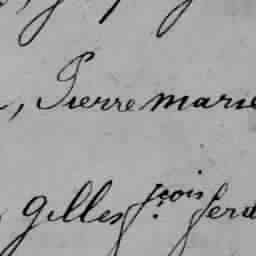 , Pierre marie
Gilles fçois ferd